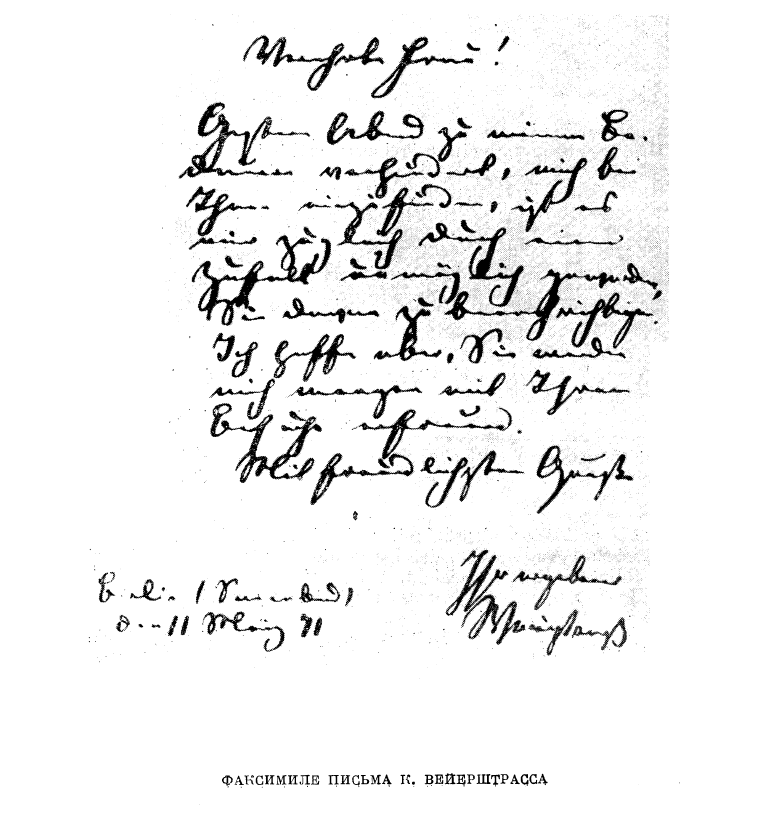 Verehrte Frau!
Gestern Abend zu meinem Be-
dauern verhindert, mich bei
Ihnen einzufinden, ist es
mir zugleich durch einen
Zufall unmöglich geworden,
Sie davon zu benachrichtigen.
Ich hoffe aber, Sie werden
mich morgen mit Ihrem
Besuche erfreuen.
Mit freundlichstem Gruße
Ihr ergebener
Weierstraß
Berlin (Sonnabend)
den 11 März 71
ФАКСИМИЛЕ ПИСЬМА К. ВЕЙЕРШТРАССА